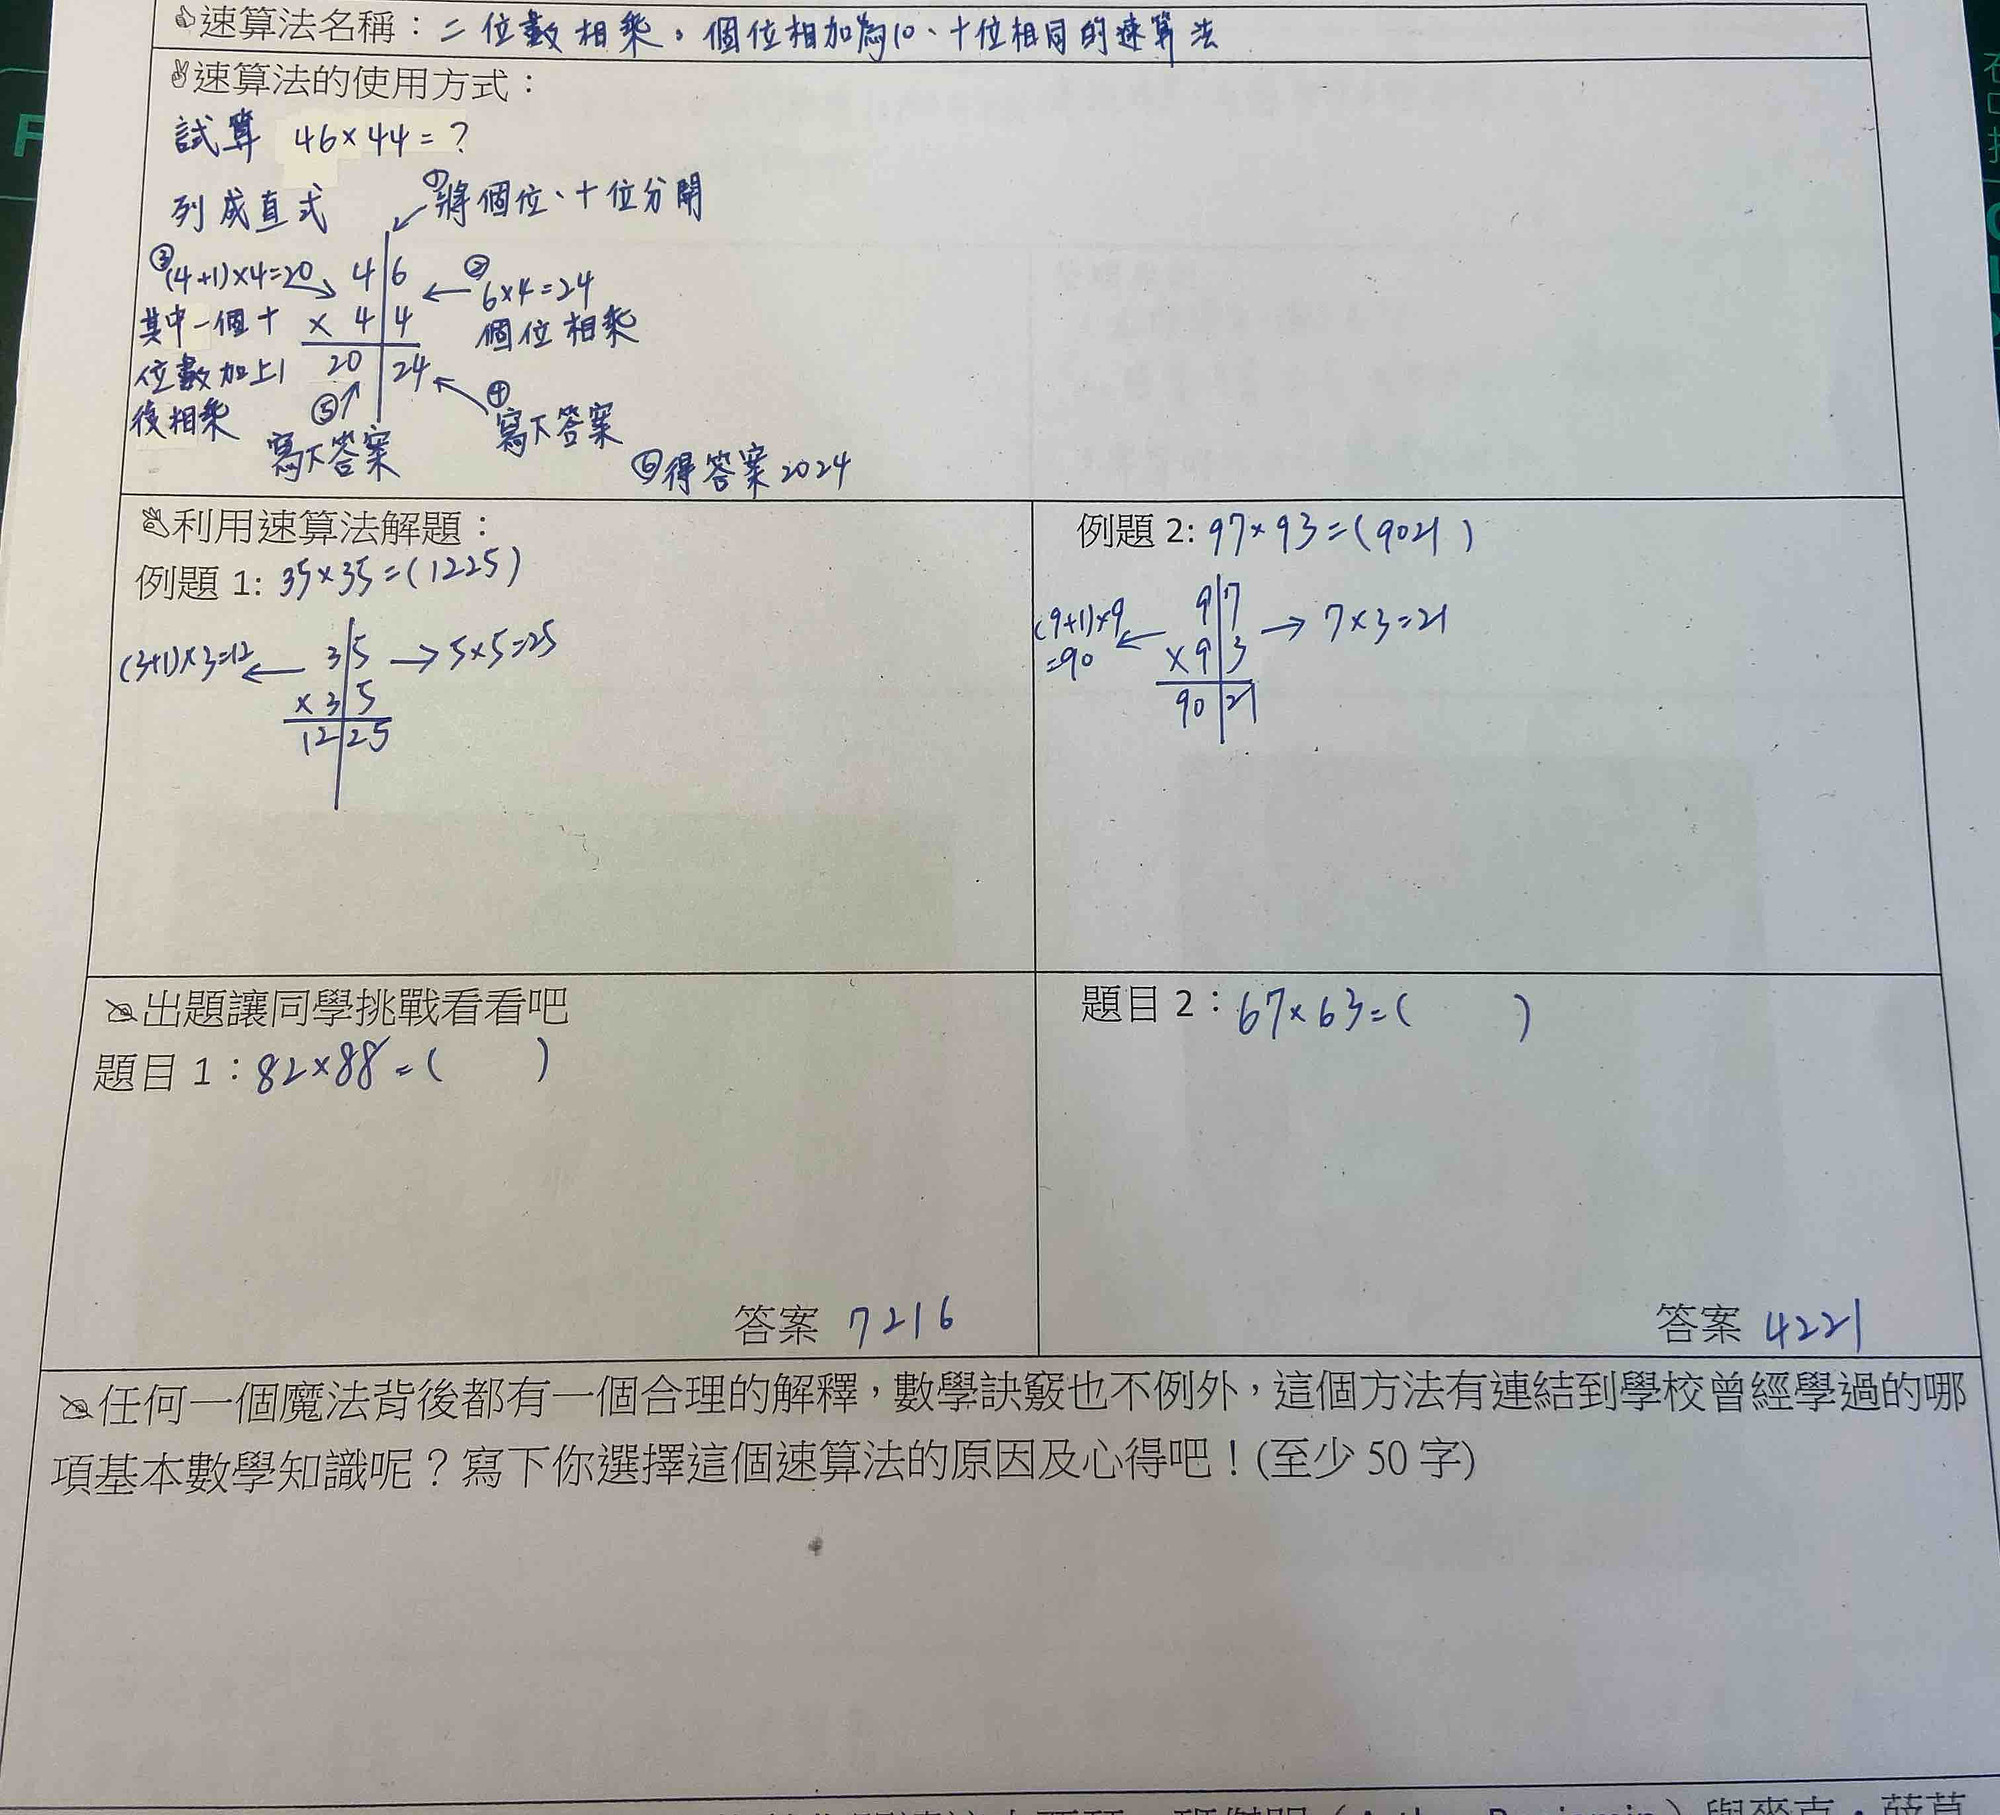 速算法名稱：二位數相乘，個位相加為10、十位相同的速算法
速算法的使用方式：
試算 46×44=?
列成直式
①將個位、十位分開
③(4+1)×4=20
其中一個十
位數加上1
後相乘
4 6
× 4 4
20 24
②6×4=24
個位相乘
④
寫下答案
⑤
寫下答案
⑥得答案2024
利用速算法解題：
例題 1: 35×35=(1225)
(3+1)×3=12
3 5
× 3 5
12 25
5×5=25
例題 2: 97×93=(9021)
(9+1)×9
=90
9 7
× 9 3
90 21
7×3=21
出題讓同學挑戰看看吧
題目 1：82×88=( )
答案 7216
題目 2：67×63=( )
答案 4221
任何一個魔法背後都有一個合理的解釋，數學訣竅也不例外，這個方法有連結到學校曾經學過的哪
項基本數學知識呢？寫下你選擇這個速算法的原因及心得吧！(至少 50 字)